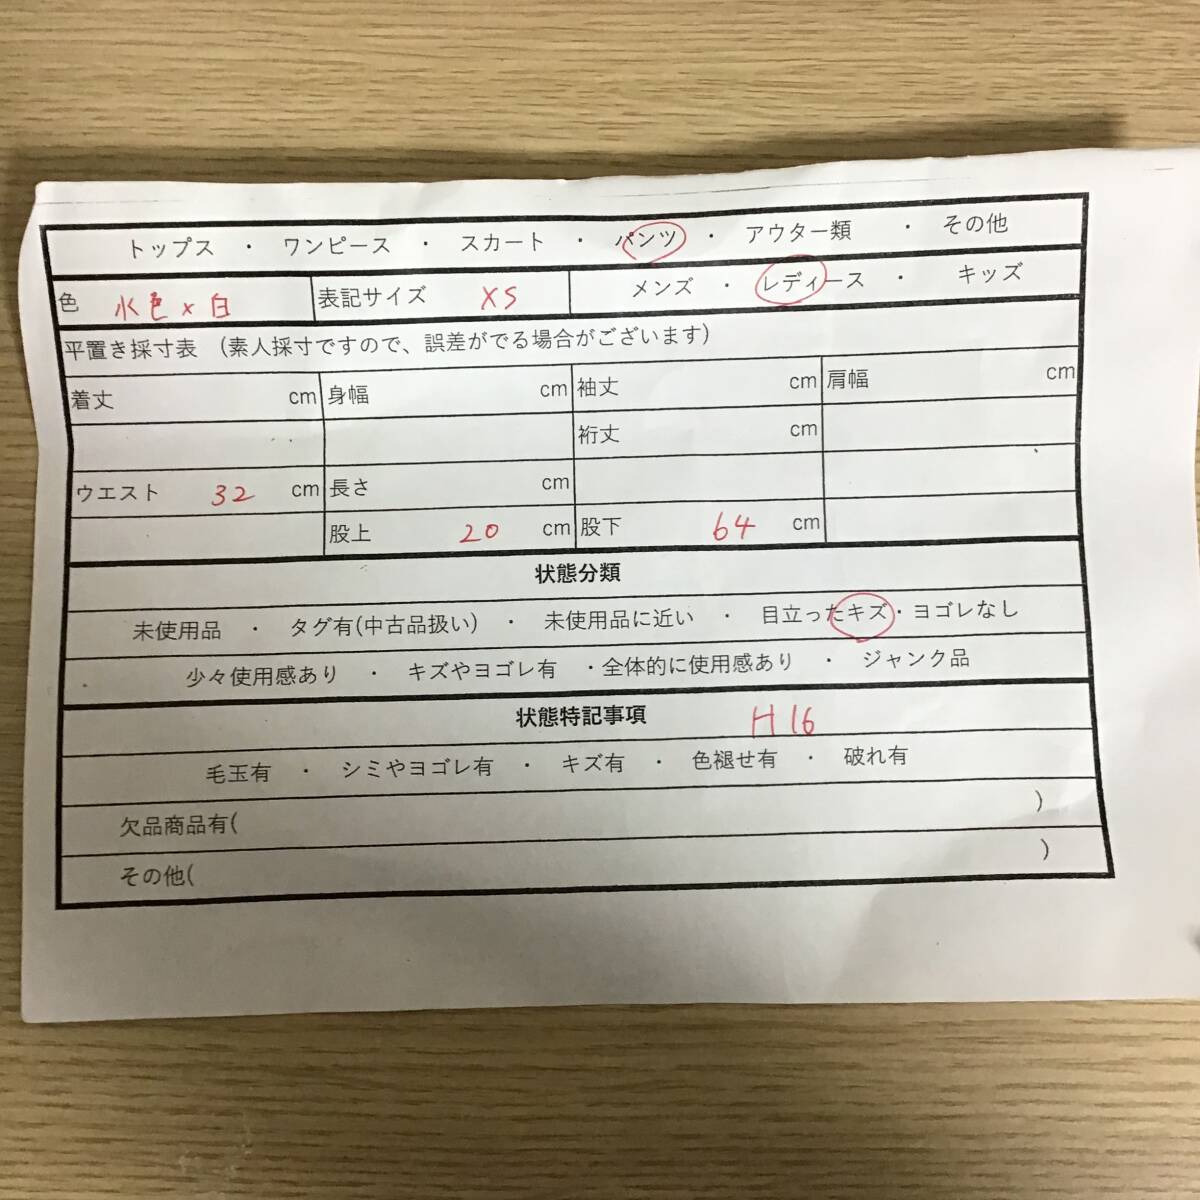 トップス ・ ワンピース ・ スカート ・ パンツ ・ アウター類 ・ その他
色 水色×白 表記サイズ XS メンズ ・ レディース ・ キッズ
平置き採寸表 (素人採寸ですので、誤差がでる場合がございます)
着丈 cm 身幅 cm 袖丈 cm 肩幅 cm
裄丈 cm
ウエスト 32 cm 長さ cm
股上 20 cm 股下 64 cm
状態分類
未使用品 ・ タグ有(中古品扱い) ・ 未使用品に近い ・ 目立ったキズ・ヨゴレなし
少々使用感あり ・ キズやヨゴレ有 ・全体的に使用感あり ・ ジャンク品
状態特記事項 H16
毛玉有 ・ シミやヨゴレ有 ・ キズ有 ・ 色褪せ有 ・ 破れ有
欠品商品有( )
その他( )